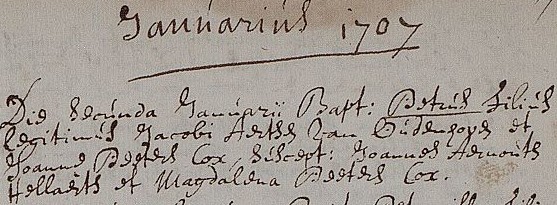 Januarius 1707
Die Secunda Januarij Bapt: Petrus filius
legitimus Jacobi Aertse van Oudengoyen et
Joanne Peeters Cox, suscept: Joannes Aernouts
Hellaerts et Magdalena Peeters Cox.